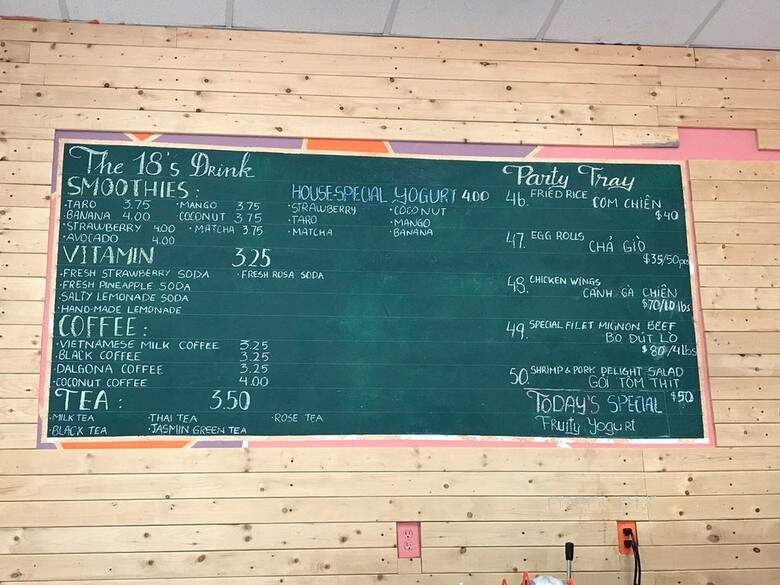 The 18's Drink
SMOOTHIES:
·TARO 3.75 ·MANGO 3.75
·BANANA 4.00 ·COCONUT 3.75
·STRAWBERRY 4.00 ·MATCHA 3.75
·AVOCADO 4.00
VITAMIN 3.25
·FRESH STRAWBERRY SODA ·FRESH ROSA SODA
·FRESH PINEAPPLE SODA
·SALTY LEMONADE SODA
·HAND-MADE LEMONADE
COFFEE:
·VIETNAMESE MILK COFFEE 3.25
·BLACK COFFEE 3.25
DALGONA COFFEE 3.25
·COCONUT COFFEE 4.00
TEA: 3.50
·MILK TEA ·THAI TEA ·ROSE TEA
·BLACK TEA ·JASMIN GREEN TEA
HOUSE-SPECIAL YOGURT 4.00
·STRAWBERRY ·COCONUT
·TARO ·MANGO
·MATCHA ·BANANA
Party Tray
46. FRIED RICE CƠM CHIÊN
$40
47. EGG ROLLS CHẢ GIÒ
$35/50pc
48. CHICKEN WINGS
CÁNH GÀ CHIÊN
$70/10 lbs
49. SPECIAL FILET MIGNON BEEF
BÒ ĐÚT LÒ
$80/4lbs
50. SHRIMP & PORK DELIGHT SALAD
GỎI TÔM THỊT
$50
TODAY'S SPECIAL
Fruity Yogurt